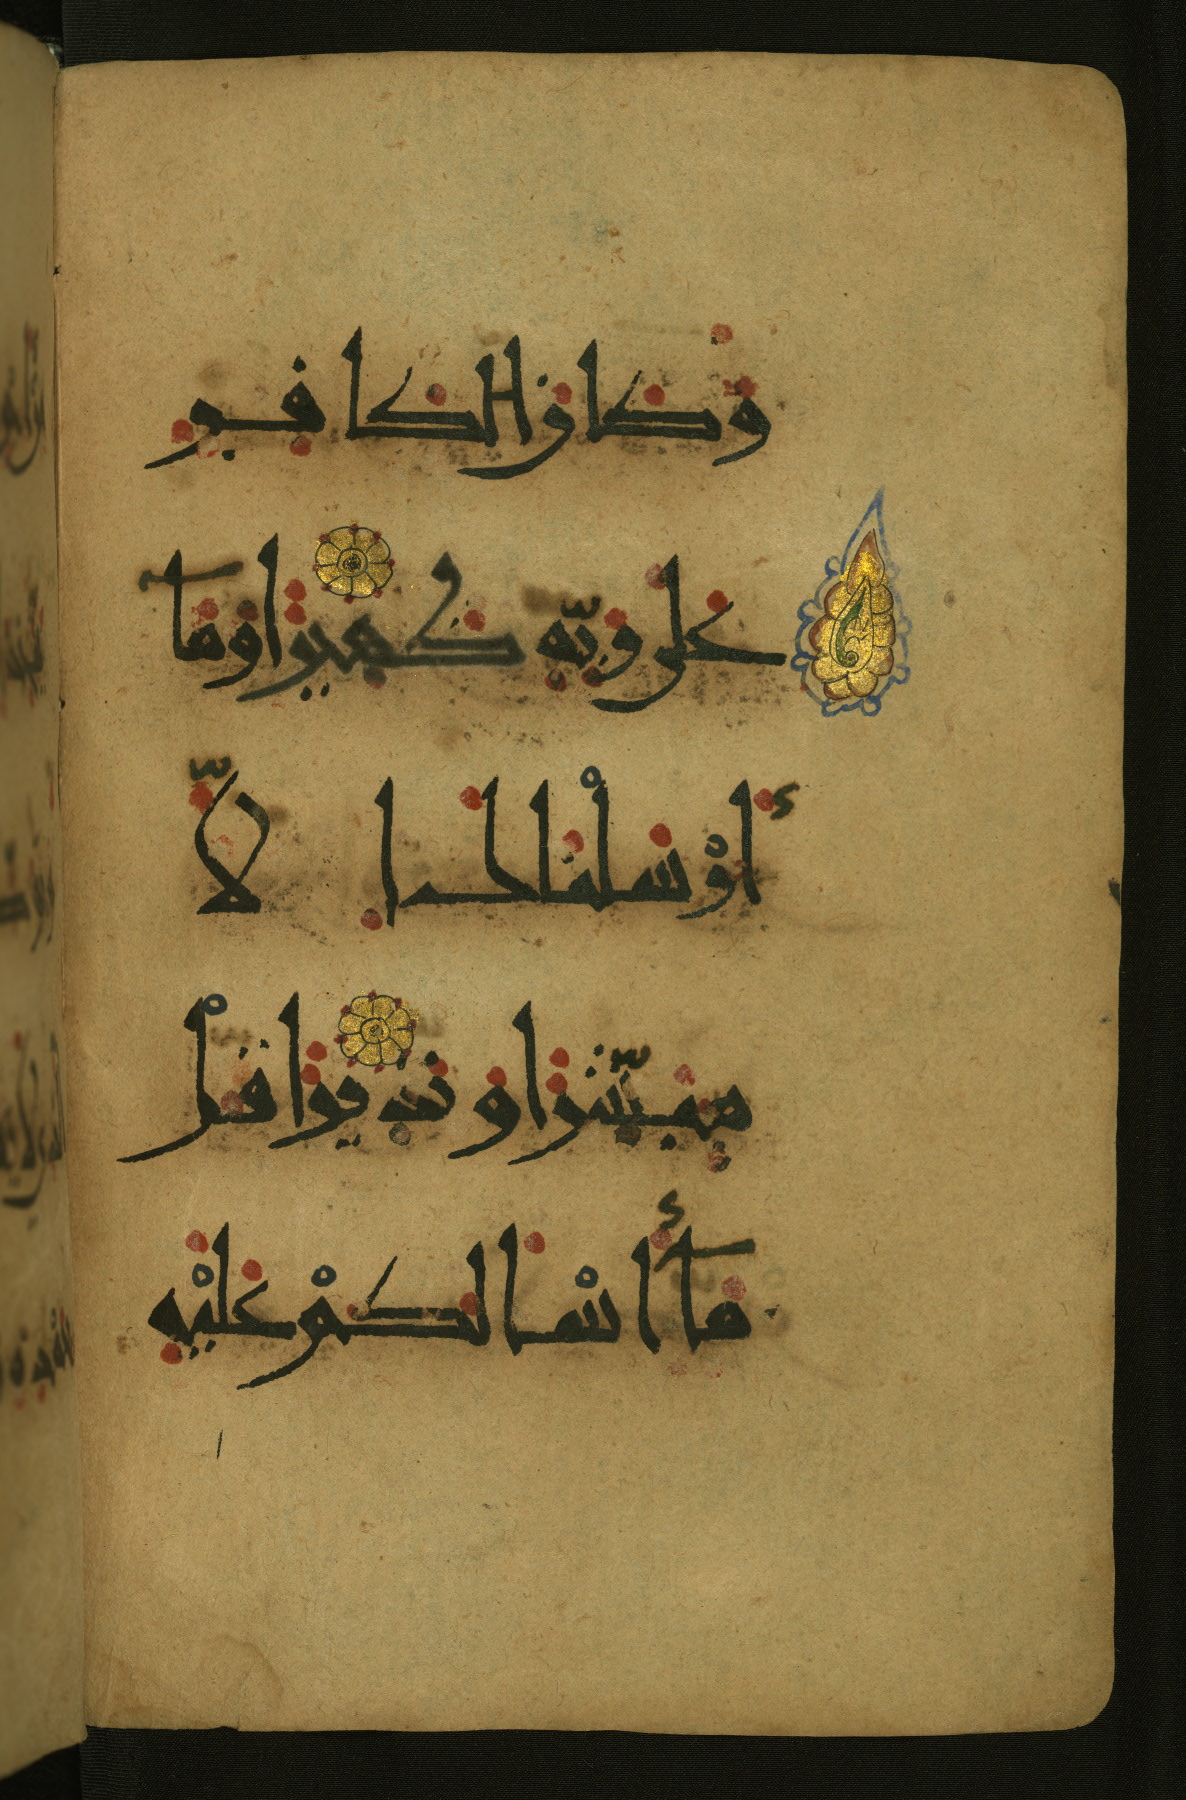 وَكَانَ الْكَافِرُ
عَلَى رَبِّهِ ظَهِيرًا وَمَآ
أَرْسَلْنَاكَ إِلَّا
مُبَشِّرًا وَنَذِيرًا قُلْ
مَآ أَسْـَٔلُكُمْ عَلَيْهِ